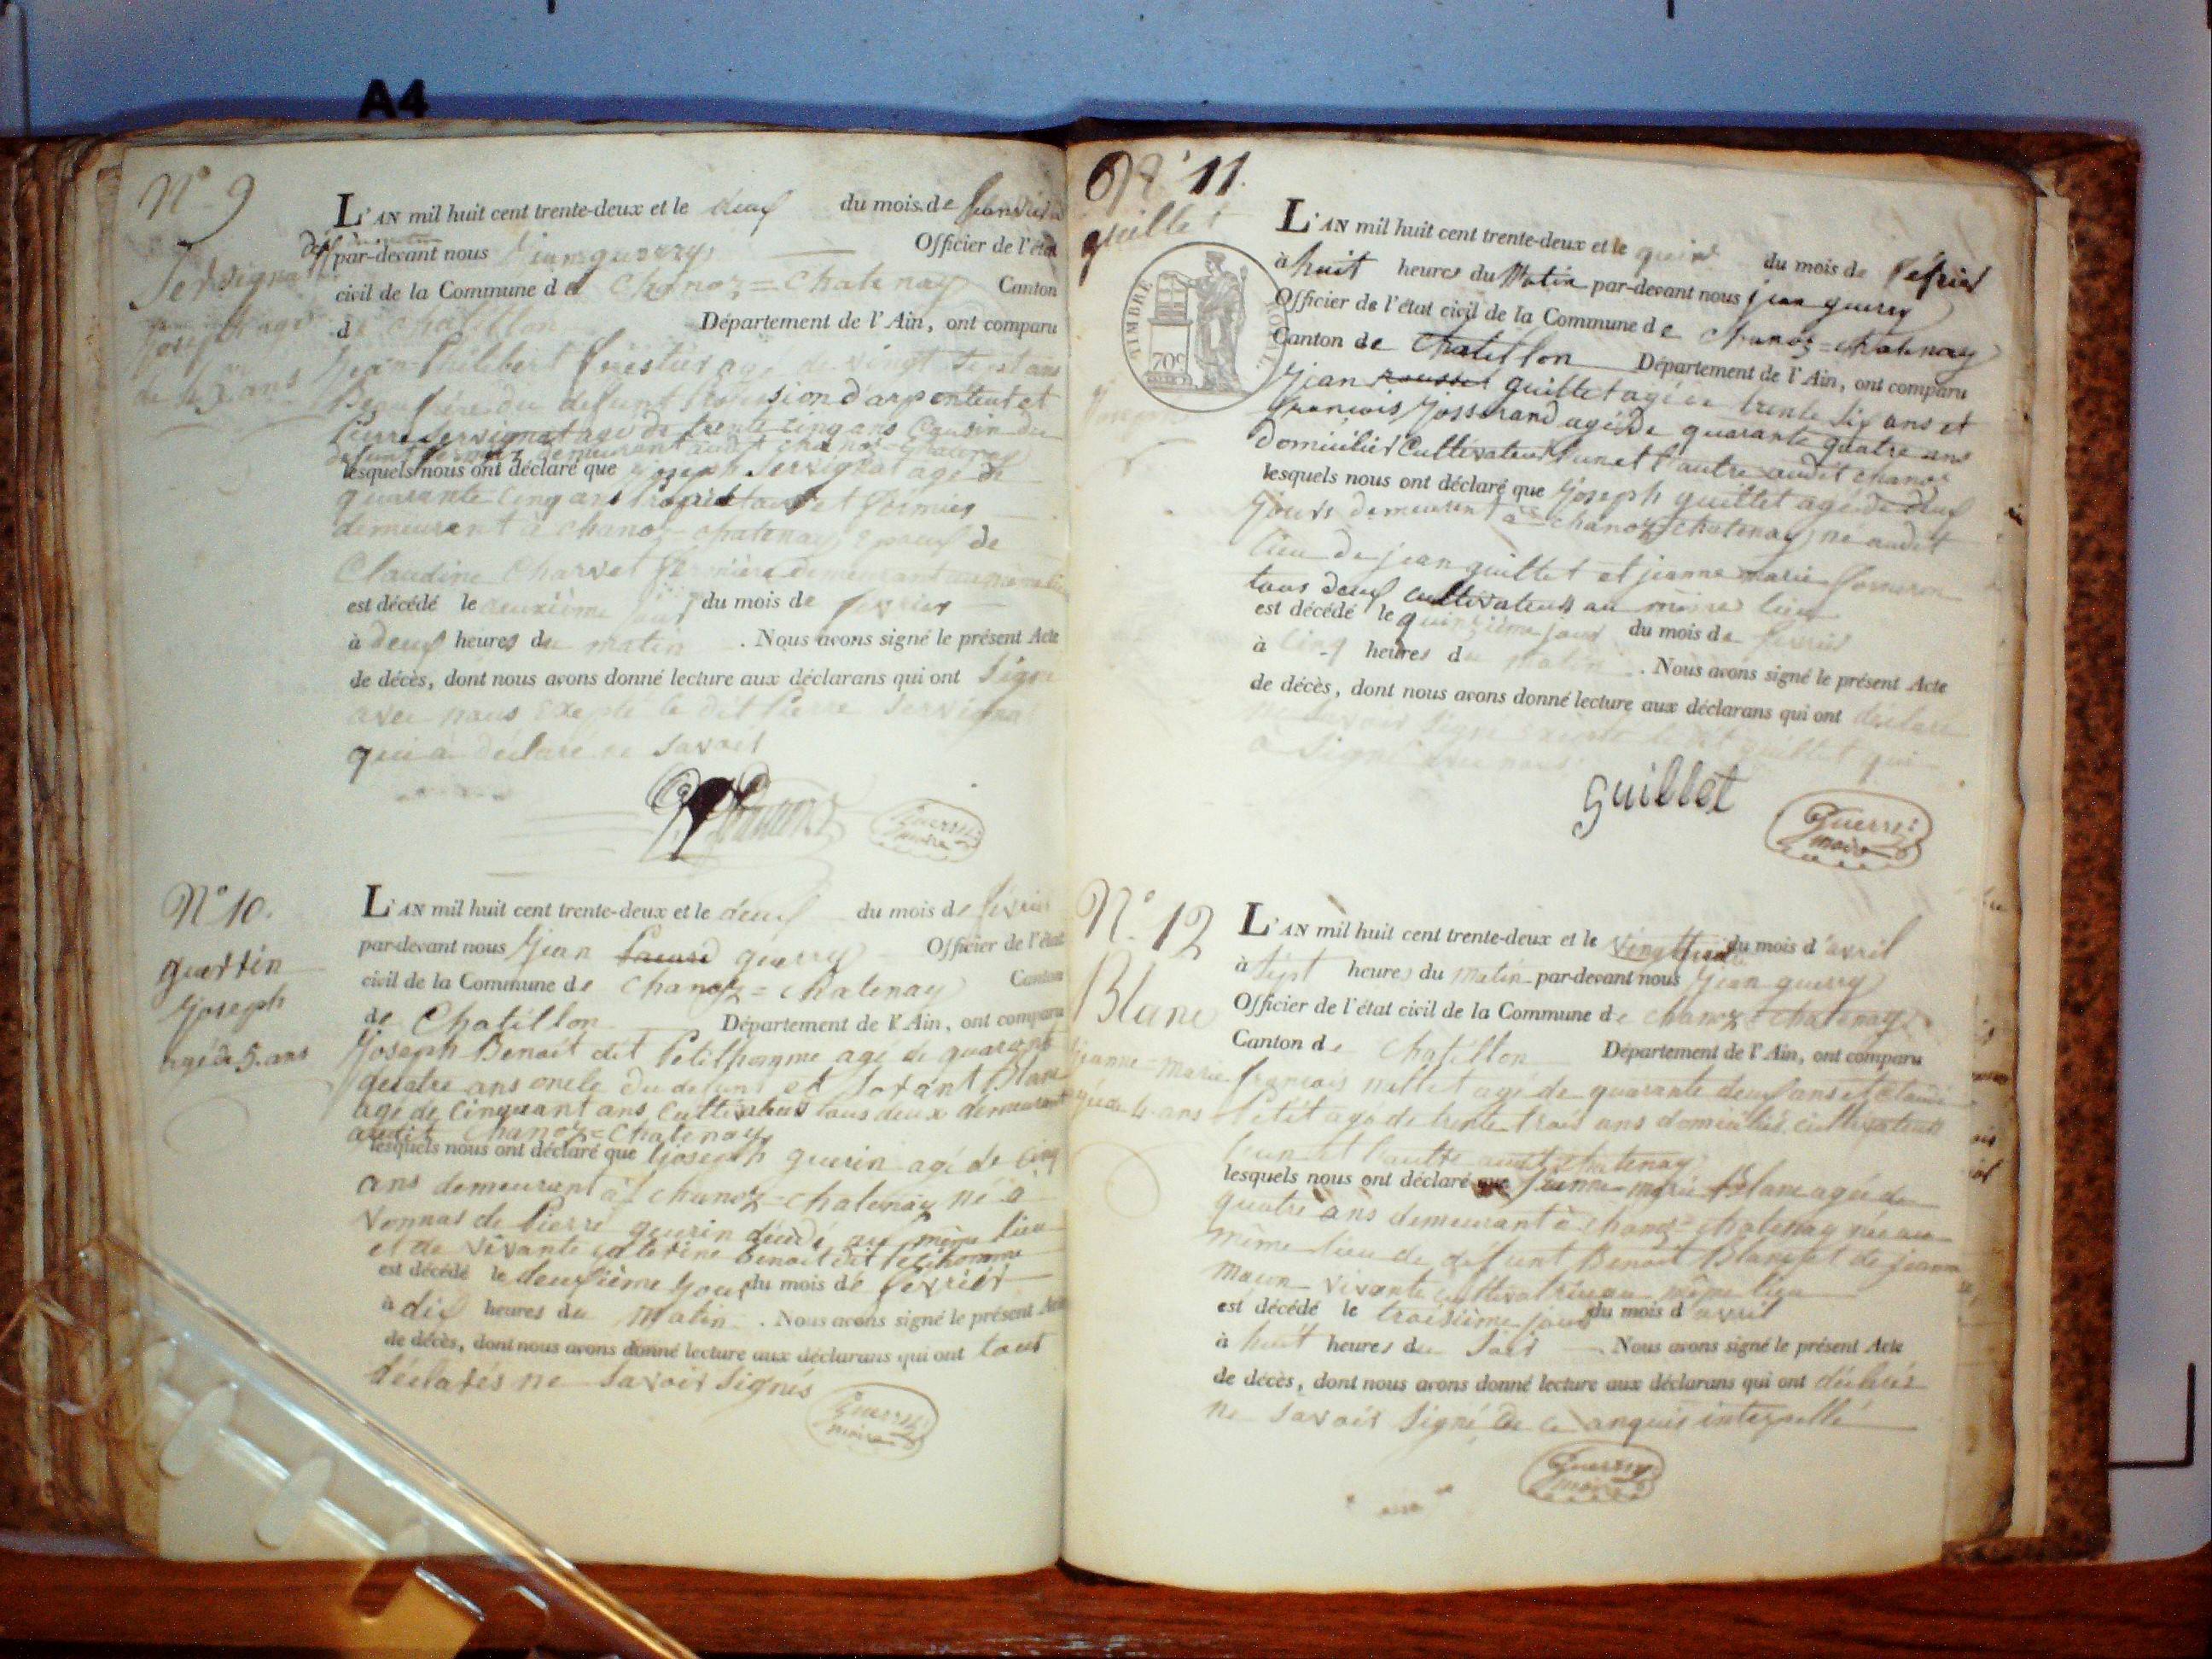 A4
N° 9
L'AN mil huit cent trente-deux et le deux du mois de
par-devant nous Jean guerry Officier de l'état
civil de la Commune de Chanoz=Chatenay Canton
de Chatillon Département de l'Ain, ont comparu
Jean Philibert agé de vingt sept ans
Beaufrère du defunt profession d'arpenteur et
Pierre Servignat agé de trente cinq ans Cousin du
defunt fermier demeurant audit chanoz-chatenay
lesquels nous ont déclaré que joseph Servignat agé de
quarante cinq ans Propriétaire et fermier
demeurant à Chanoz-chatenay Epoux de
Claudine Charvet fermière demeurant au même lieu
est décédé le deuxième jour du mois de fevrier
à deux heures du matin . Nous avons signé le présent Acte
de décès, dont nous avons donné lecture aux déclarans qui ont Signé
avec nous Excepté le dit Pierre Servignat
qui à déclaré ne Savoir
Guerry
maire
N° 10.
guerrin
joseph
agé de 5. ans
L'AN mil huit cent trente-deux et le deux du mois de fevrier
par-devant nous Jean guerry Officier de l'état
civil de la Commune de Chanoz=chatenay Canton
de Chatillon Département de l'Ain, ont comparu
Joseph Benoit dit Petithomme agé de quarant
quatre ans oncle du defunt et Blanc
agé de Cinquant ans Cultivateurs tous deux demeurant
audit Chanoz=Chatenay
lesquels nous ont déclaré que joseph guerin agé de Cinq
ans demeurant à chanoz-chatenay né à
Vonnas de Pierre guerin décédé au même lieu
et de vivante caterine benoit dit Petithomme
est décédé le deuxième jour du mois de fevrier
à dix heures du Matin . Nous avons signé le présent Acte
de décès, dont nous avons donné lecture aux déclarans qui ont tout
déclarés ne Savoir Signés
Guerry
maire
N° 11.
guillet
TIMBRE ROYAL
70c
L'AN mil huit cent trente-deux et le quinze du mois de fefrier
à huit heures du Matin par-devant nous jean guerry
Officier de l'état civil de la Commune de chanoz=chatenay
Canton de Chatillon Département de l'Ain, ont comparu
jean rousset guillet agé de trente six ans et
François Josserand agé de quarante quatre ans
domiciliés Cultivateurs l'un et l'autre audit chanoz
lesquels nous ont déclaré que joseph guillet agé de deux
jours demeurent à chanoz=chatenay ne audit
lieu de jean guillet et jeanne marie
tous deux cultivateurs au même lieu
est décédé le quinzième jour du mois de fevrier
à cinq heures du matin . Nous avons signé le présent Acte
de décès, dont nous avons donné lecture aux déclarans qui ont déclaré
ne Savoir Signé Excepté le dit guillet qui
à Signé avec nous
guillet
Guerry
maire
N° 12
Blanc
jeanne-marie
agée de 4 ans
L'AN mil huit cent trente-deux et le du mois d'avril
à sept heures du matin par-devant nous jean guerry
Officier de l'état civil de la Commune de chanoz=chatenay
Canton de Chatillon Département de l'Ain, ont comparu
françois millet agé de quarante deux ans et Claude
Petit agé de trente trois ans domiciliés cultivateurs
l'un et l'autre audit chatenay
lesquels nous ont déclaré que jeanne-marie Blanc agée de
quatre ans demeurant à chanoz=chatenay née au
même lieu de defunt Benoit Blanc et de jeanne
vivante cultivatrice au même lieu
est décédé le troisième jour du mois d'avril
à huit heures du Soir . Nous avons signé le présent Acte
de décès, dont nous avons donné lecture aux déclarans qui ont déclarés
ne Savoir Signé de ce anquis interpellé
Guerry
maire